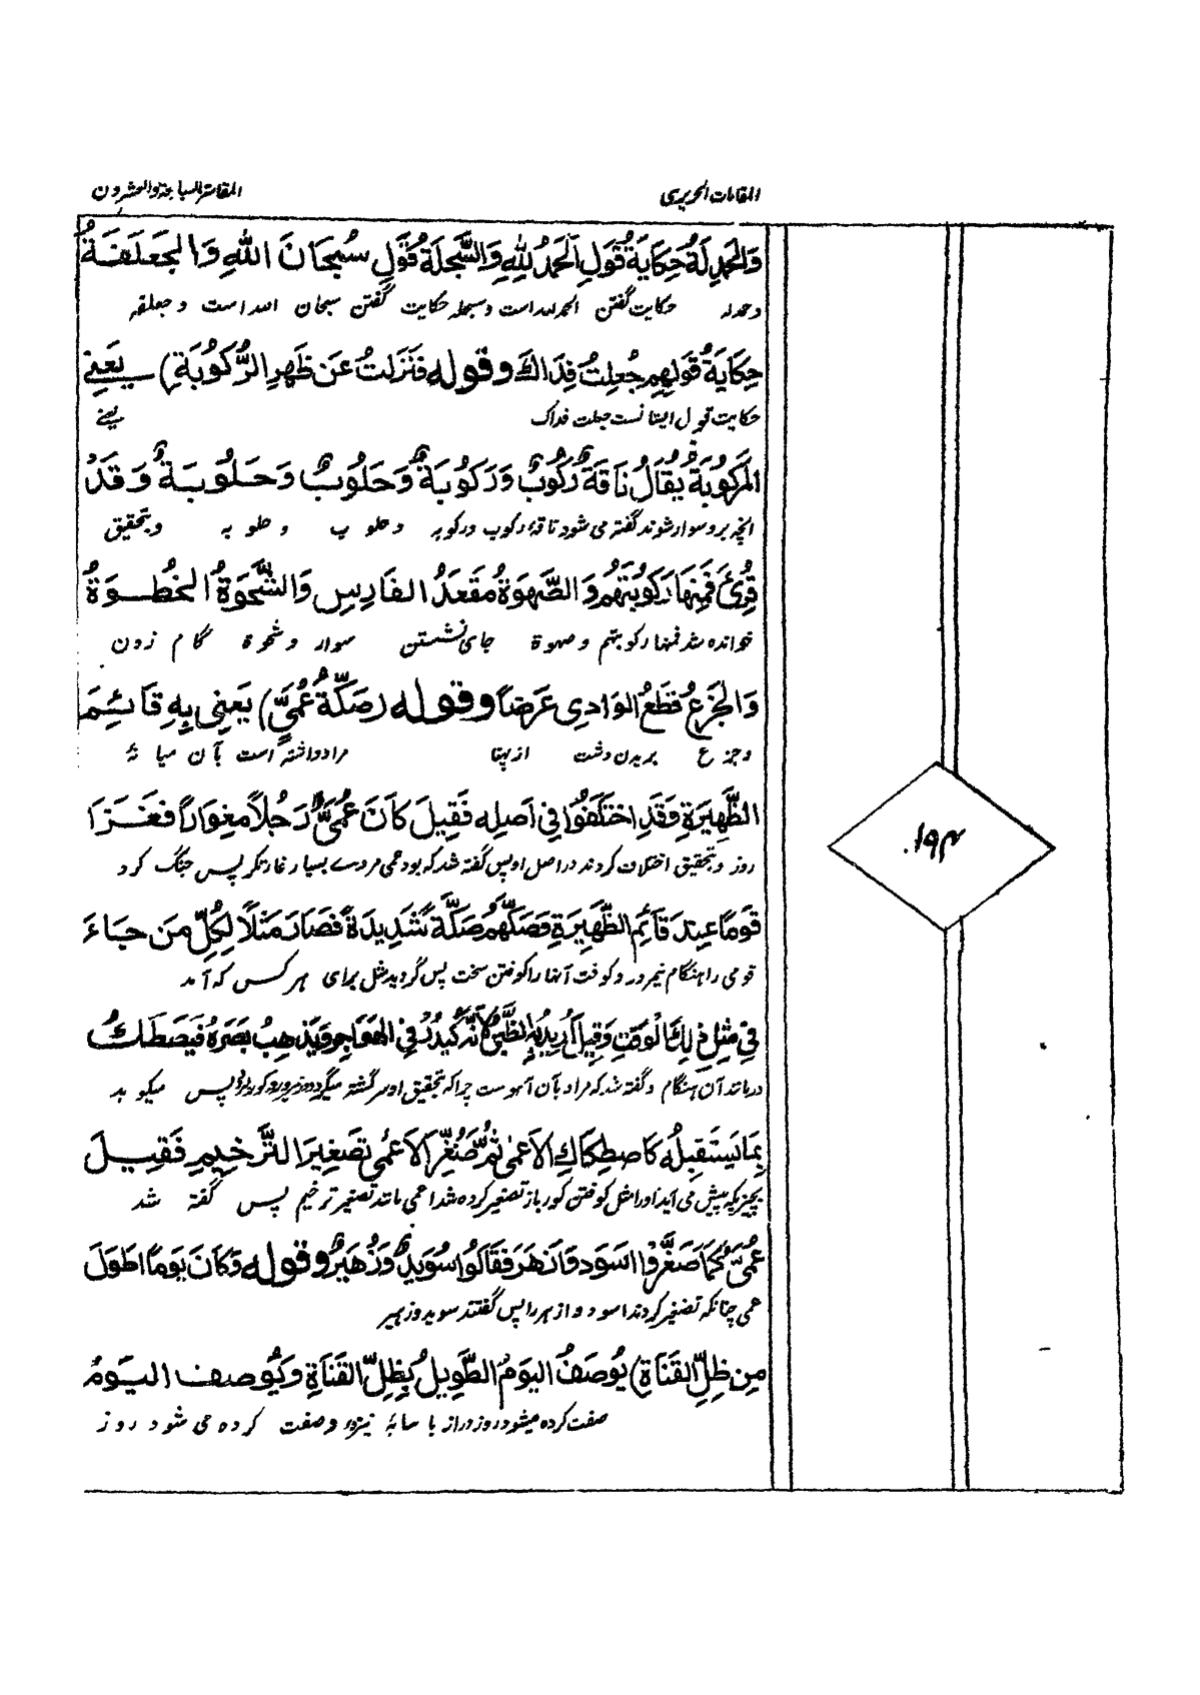 المقامات الحريرى
المقامة السابعة والعشرون
وَالْحَمْدَلَةُ حِكَايَةُ قَوْلِ اَلْحَمْدُ لِلّٰهِ وَالسَّبْحَلَةُ قَوْلِ سُبْحَانَ اللهِ وَالْجَعْلَفَةُ
وحمدله حکایت گفتن الحمدلله است و سبحله حکایت گفتن سبحان الله است و جعلفه
حِكَايَةُ قَوْلِهِمْ جُعِلْتُ فِدَاكَ وقوله فَنَزَلْتُ عَنْ ظَهْرِ الرَّكُوبَةِ) يَعْنِي
حکایت قول ایشانست جعلت فداک یعنے
الْمَرْكُوبَةَ يُقَالُ نَاقَةٌ رَكُوبٌ وَرَكُوبَةٌ وَحَلُوبٌ وَحَلُوبَةٌ وَقَدْ
انچه برو سوار شوند گفته می شود ناقهٔ رکوب و رکوبه و حلوب و حلوبه و بتحقیق
قُرِئَ فَمِنْهَا رَكُوبَتُهُمْ وَالصَّهْوَةُ مَقْعَدُ الفَارِسِ وَالشَّحْوَةُ الخُطْوَةُ
خوانده شد فمنها رکوبتهم و صهوة جای نشستن سوار و شحوة گام زدن
وَالْجَزْعُ قَطْعُ الوَادِي عَرْضًا وقوله (صَكَّةَ عُمَيٍّ) يَعْنِي بِهِ قَائِمَ
وجزع بریدن دشت از پهنا مراد داشته است بآن میانهٔ
الظَّهِيرَةِ وَقَدِ اخْتَلَفُوا فِي اَصْلِهِ فَقِيلَ كَانَ عُمَيٌّ رَجُلاً مِغْوَاراً فَغَزَا
روز و بتحقیق اختلاف کردند در اصل او پس گفته شد که بود عمی مردے بسیار غارتگر پس جنگ کرد
قَوْمًا عِنْدَ قَائِمِ الظَّهِيرَةِ فَصَكَّهُمْ صَكَّةً شَدِيدَةً فَصَارَ مَثَلًا لِكُلِّ مَنْ جَاءَ
قومی را هنگام نیمروز و کوفت آنها را کوفتن سخت پس گردید مثل برای هر کس که آمد
فِي مِثْلِ ذٰلِكَ الْوَقْتِ وَقِيلَ اُرِيْدَ بِهِ الظَّبْيُ لِاَنَّهُ يَدُوْرُ فِي الْهَوَاجِرِ وَيَذْهَبُ بَصَرُهُ فَيَصْطَكُّ
در مانند آن هنگام و گفته شد که مراد بآن آهوست چرا که بتحقیق او سرگشته میگردد پس میکوبد
بِمَا يَسْتَقْبِلُهُ كَاصْطِكَاكِ الاَعْمٰى ثُمَّ صُغِّرَ الاَعْمٰى تَصْغِيرَ التَّرْخِيمِ فَقِيلَ
بچیزیکه پیش می آید او را مثل کوفتن کور باز تصغیر کرده شد اعمی مانند تصغیر ترخیم پس گفته شد
عُمَيٌّ كَمَا صَغَّرُوا اَسْوَدَ وَاَزْهَرَ فَقَالُوْا سُوَيْدٌ وَزُهَيْرٌ وقوله وَكَانَ يَوْمًا اَطْوَلَ
عمی چنانکه تصغیر کردند اسود و ازهر را پس گفتند سوید و زهیر
مِنْ ظِلِّ القَنَاةِ) يُوصَفُ اليَوْمُ الطَّوِيلُ بِظِلِّ القَنَاةِ وَيُوصَف اليَوْمُ
صفت کرده میشود روز دراز با سایهٔ نیزه و صفت کرده می شود روز